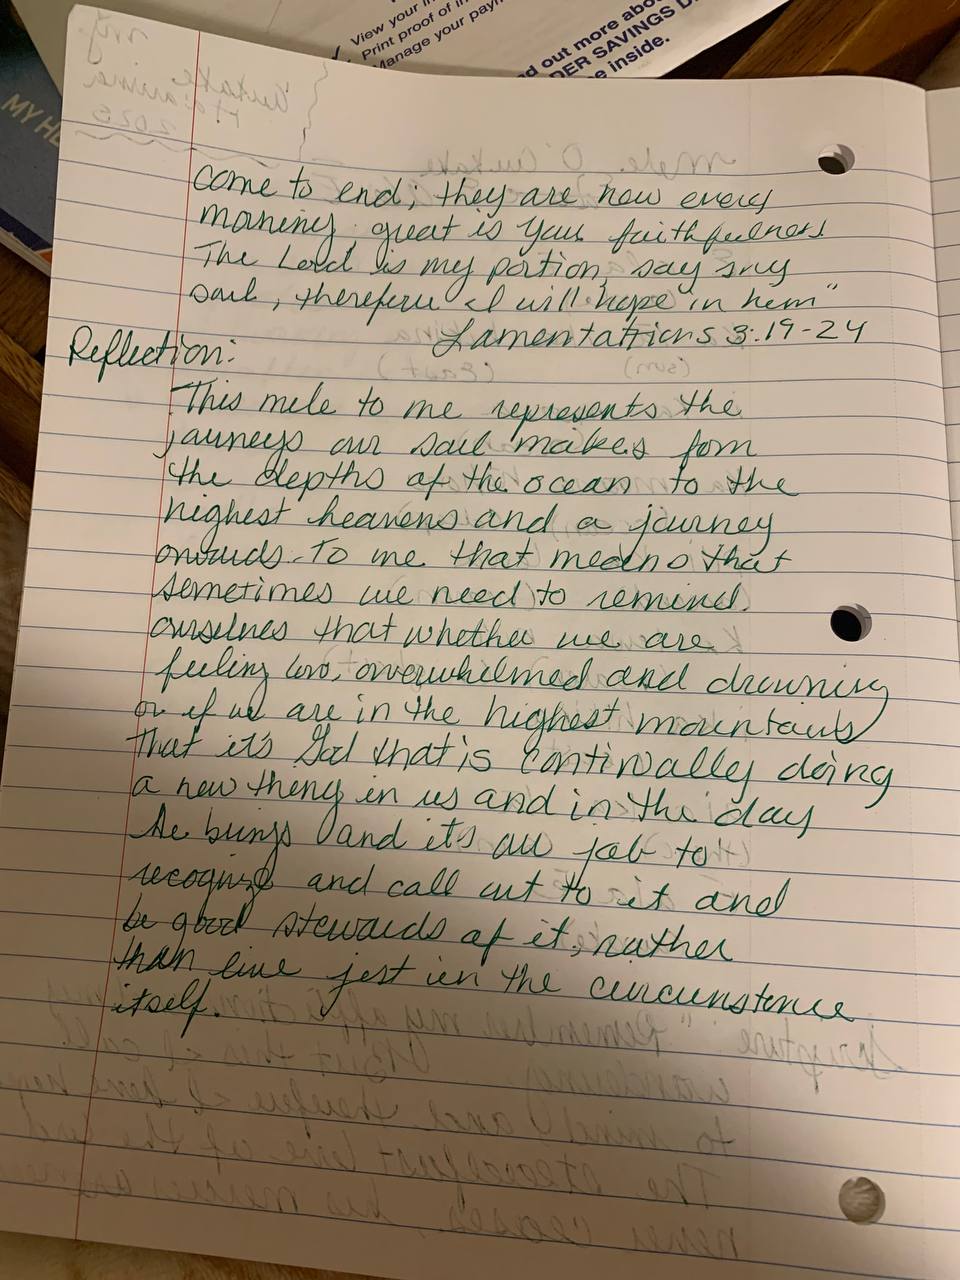 View your in
Print proof of in
Manage your paym
d out more abou
DER SAVINGS D
e inside.
MY HE
come to end; they are new every
morning; great is your faithfulness
The Lord is my portion, say my
soul, therefore I will hope in him"
Lamentatrions 3:19-24
Reflection:
This mele to me represents the
journeys our soul makes fom
the depths of the ocean to the
highest heavens and a journey
onwards. To me that means that
sometimes we need to remind
ourselves that whether we are
feeling low, overwhelmed and drowning
or if we are in the highest mountains
that it's God that is continually doing
a new thing in us and in the day
He brings and it's our job to
recognize and call out to it and
be good stewards of it, rather
than live just in the circumstence
itself.